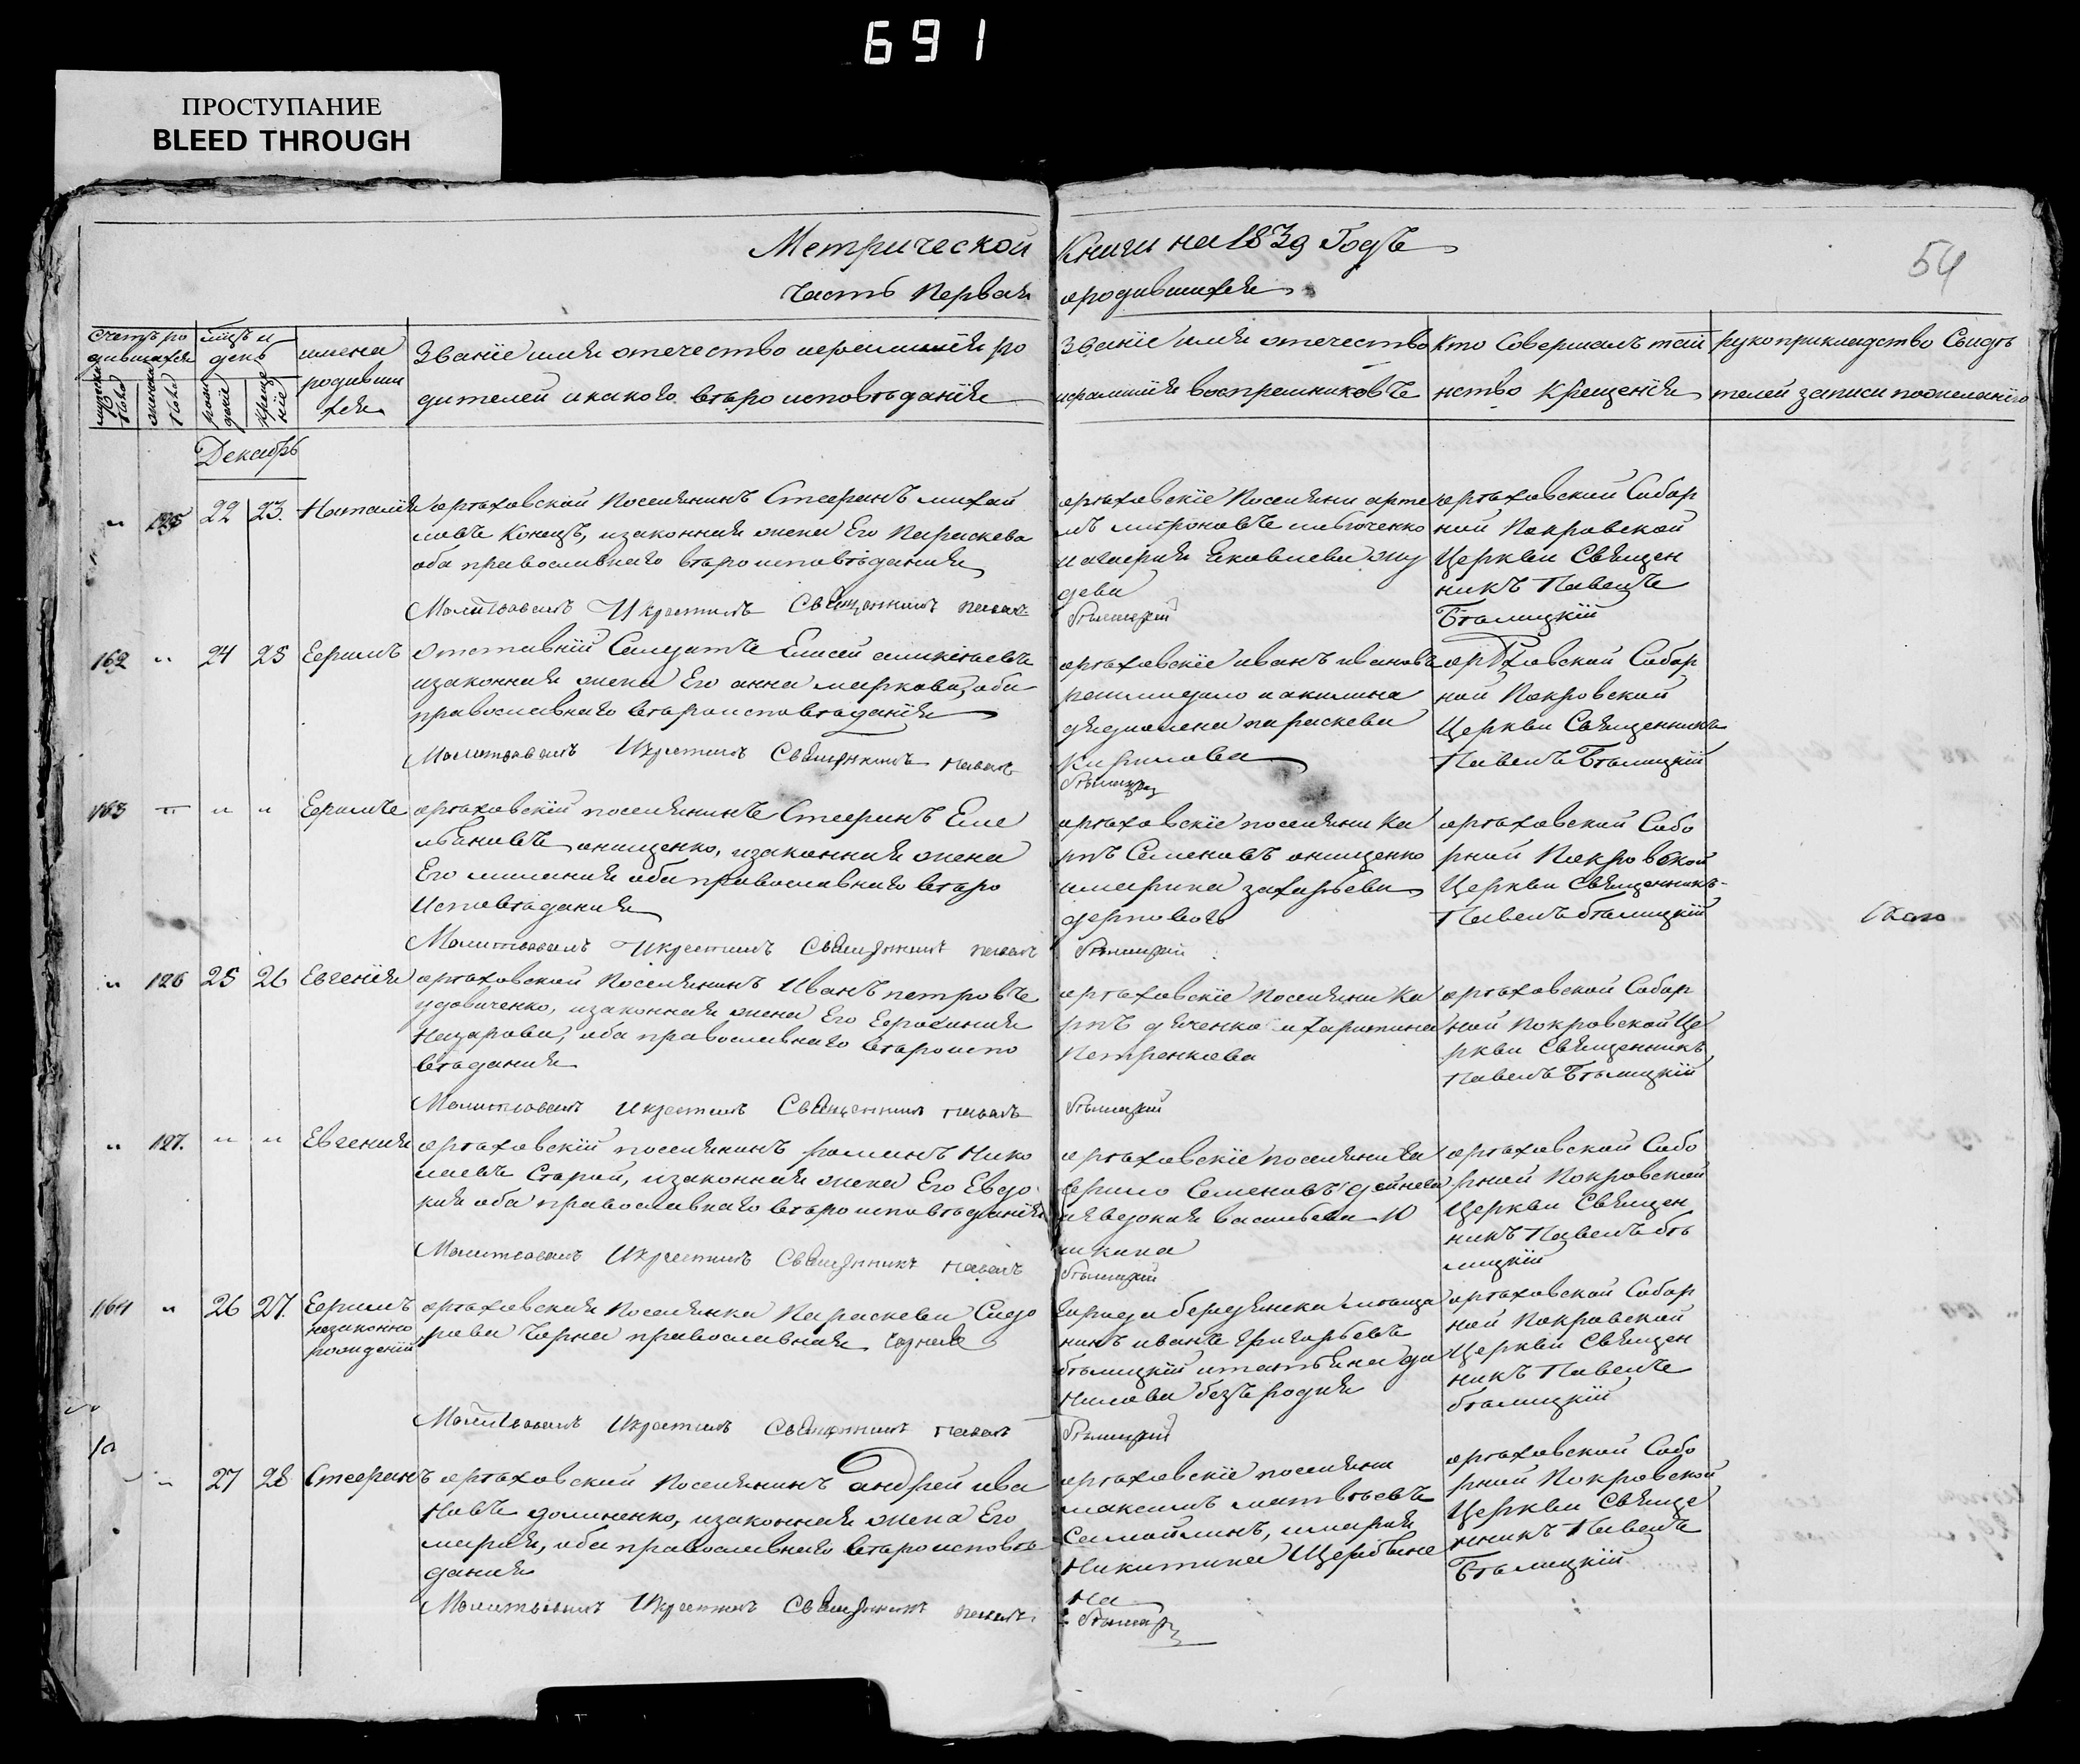 691
ПРОСТУПАНИЕ
BLEED THROUGH
Метрической Книги на 1839 Годъ
54
Часть Первая ородившихся
Счетъ ро
дившихся
мужеска
женска
пола
мцъ и
день
рож
деніе
креще
ніе
имена
родивши
хся
Званіе имя отечество ифамилія ро
дителей икакого вѣроисповѣданія
Званіе имя отечество
ифамилія воспреемниковъ
Кто Совершалъ таи
нство Крещенія
рукоприкладство Свидѣ
телей записи пожеланію
Декабрь
" 125 22 23. Наталія
орѣховской Поселянинъ Стефанъ михай
ловъ Конецъ, изаконная жена Его Параскева
оба православнаго вѣроисповѣданія
Молитвовалъ Икрестилъ Священникъ павелъ
бѣлицкій
орѣховскіе Поселяни арте
мъ мироновъ
иагафия Яковлева
дева
орѣховский Собор
ной Покровской
Церкви Священ
никъ Павелъ
Бѣлицкій
162 " 24 25 Ефимъ
Отставній Салдатъ Елисей
изаконная жена Его анна маркова, оба
православнаго вѣроисповѣданія
Молитвовалъ Икрестилъ Священникъ павелъ
бѣлицкій
орѣховскіе иванъ ивановъ
иакилина
параскева
Кирилова
орѣховской Собор
ной Покровской
Церкви Священникъ
Павелъ Бѣлицкій
163 " " " Ефимъ
орѣховскій поселянинъ Стефанъ Еме
льяновъ онищенко, изаконная жена
Его мелания оба православнаго вѣро
Исповѣдания
Молитвовалъ Икрестилъ Священникъ павелъ
бѣлицкій
орѣховскіе поселяни Ка
рпъ Семеновъ онищенко
имарина захарьева
орѣховский Собо
рной Покровской
Церкви Священникъ
Павелъ бѣлицкій
" 126 25 26 Евгенія
орѣховской Поселянинъ Иванъ петровъ
удовиченко, изаконная жена Его Ефросиния
Назарова, оба православнаго вѣроиспо
вѣдания
Молитвовалъ Икрестилъ Священникъ павелъ
бѣлицкій
орѣховскіе Поселяни Ка
рпъ дяченко ихаритина
Петренкова
орѣховской Собор
ной Покровской Це
ркви Священникъ
Павелъ Бѣлицкій
" 127. " " Евгения
орѣховскій поселянинъ романъ Нико
лаевъ Старой, изаконная жена Его Евдо
кия оба православнаго вѣроисповѣданія
Молитвовалъ Икрестилъ Священникъ павелъ
бѣлицкій
орѣховскіе поселяни Га
врило Семеновъ дейнега
иЕвдокия васильева Ю
шкина
орѣховской Собо
рной Покровской
Церкви Священ
никъ Павелъ бѣ
лицкій
164 " 26 27. Ефимъ
незаконно
рожденій
орѣховская Поселянка Параскева Сидо
рова Чорна православная
Молитвовалъ Икрестилъ Священникъ павелъ
бѣлицкій
Города бердянска мѣща
нинъ иванъ Григорьевъ
бѣлицкій итатьяна да
нилова безъродня
орѣховской Собор
ной Покровской
Церкви Священ
никъ Павелъ
бѣлицкій
" 27 28 Стефанъ
орѣховский Поселянинъ андрей ива
новъ долиненко, изаконная жена Его
мария, оба православнаго вѣроисповѣ
дания
Молитвовалъ Икрестилъ Священникъ павелъ
бѣлицкій
орѣховскіе поселяни
максимъ матвѣевъ
Самойлинъ, имария
Никитина Щербине
на
орѣховской Собо
рной Покровской
Церкви Священ
никъ Павелъ
Бѣлицкій